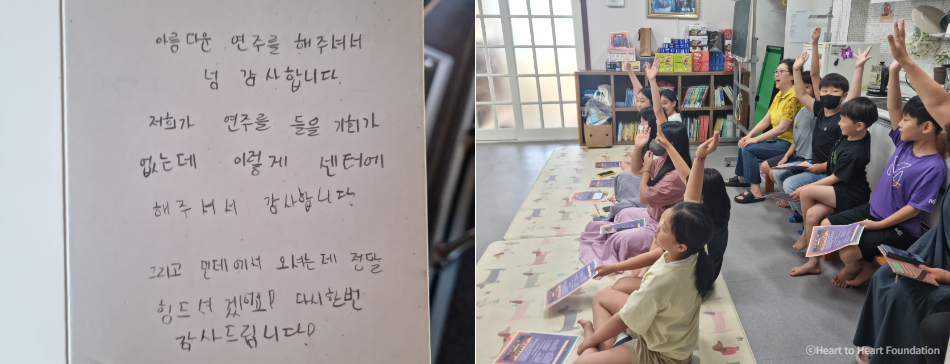 아름다운 연주를 해주셔서
넘 감사합니다.
저희가 연주를 들을 기회가
없는데 이렇게 센터에
해주셔서 감사합니다
그리고 먼데에서 오셔는데 전달
힘드셔 겠어요? 다시한번
감사드립니다?
©Heart to Heart Foundation